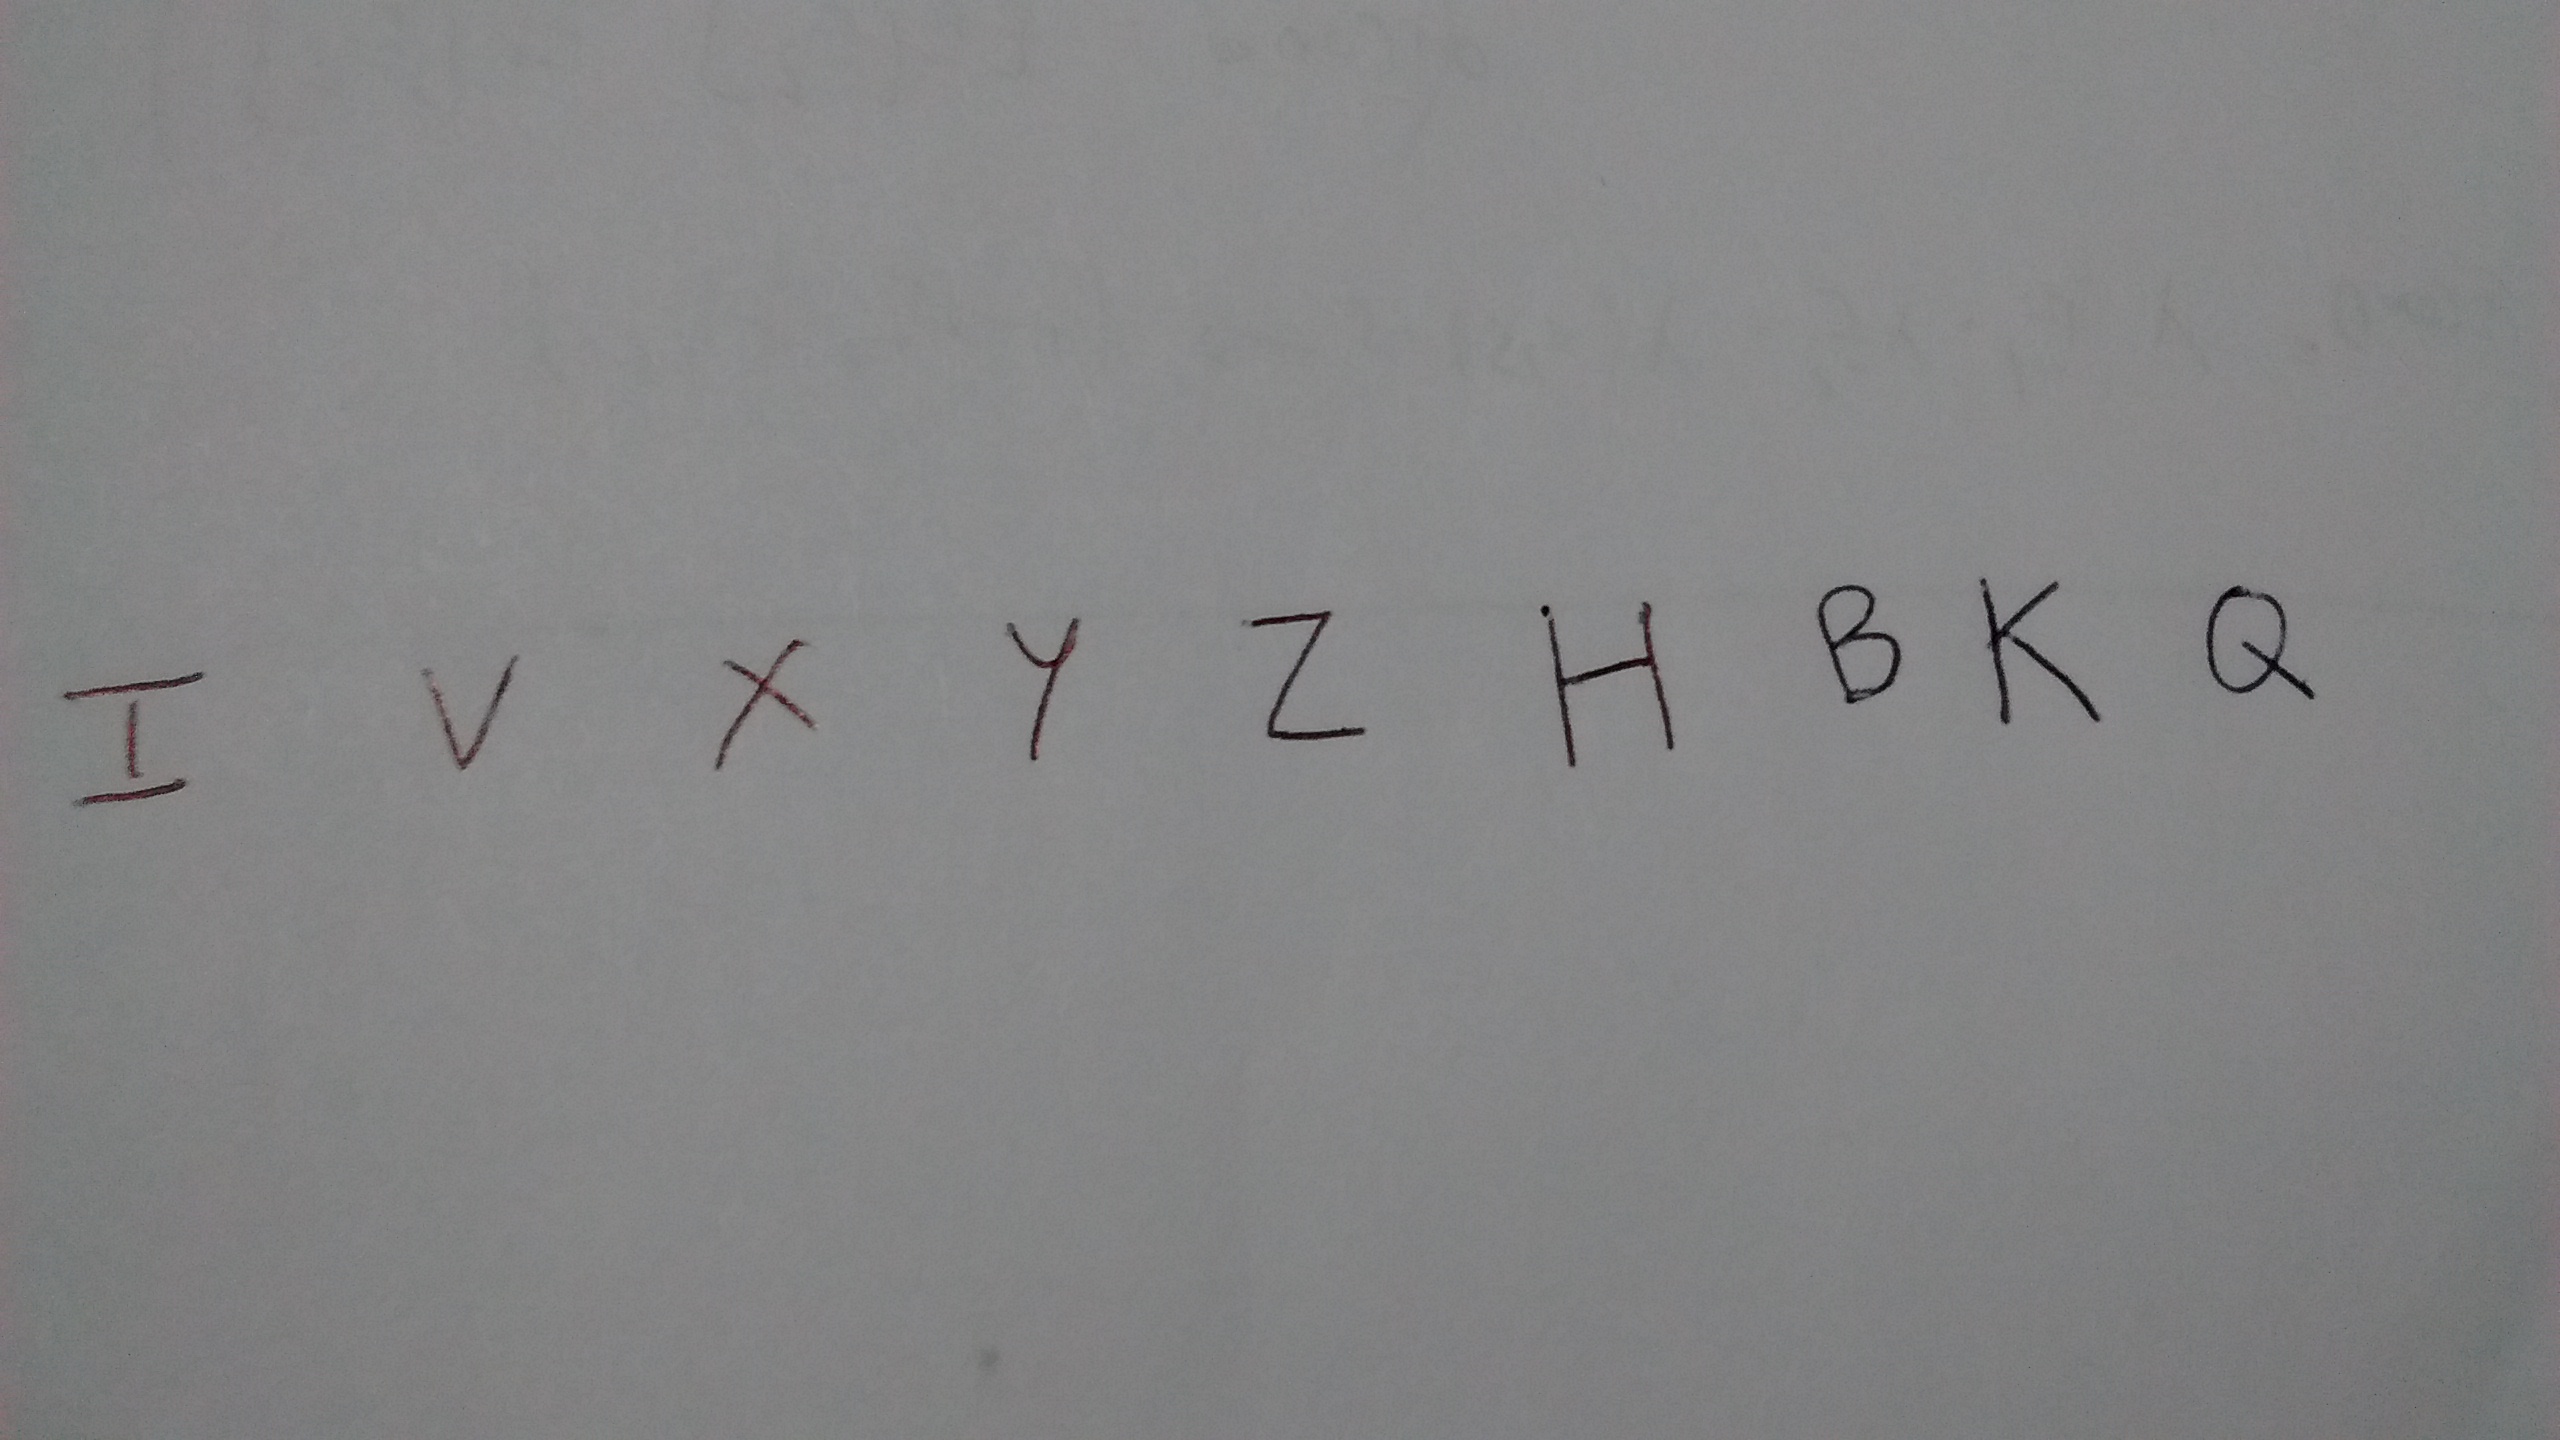 I V X Y Z H B K Q